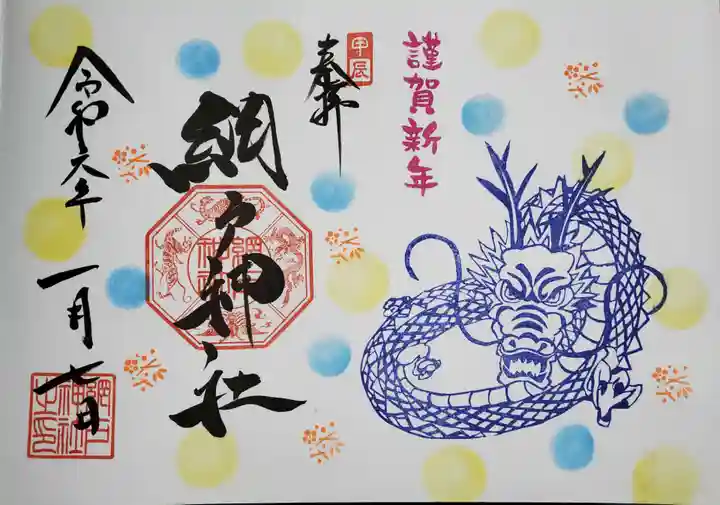 謹賀新年
甲辰
奉拝
網戸神社
網戸神社
令和六年
一月七日
網戸
神社
之印